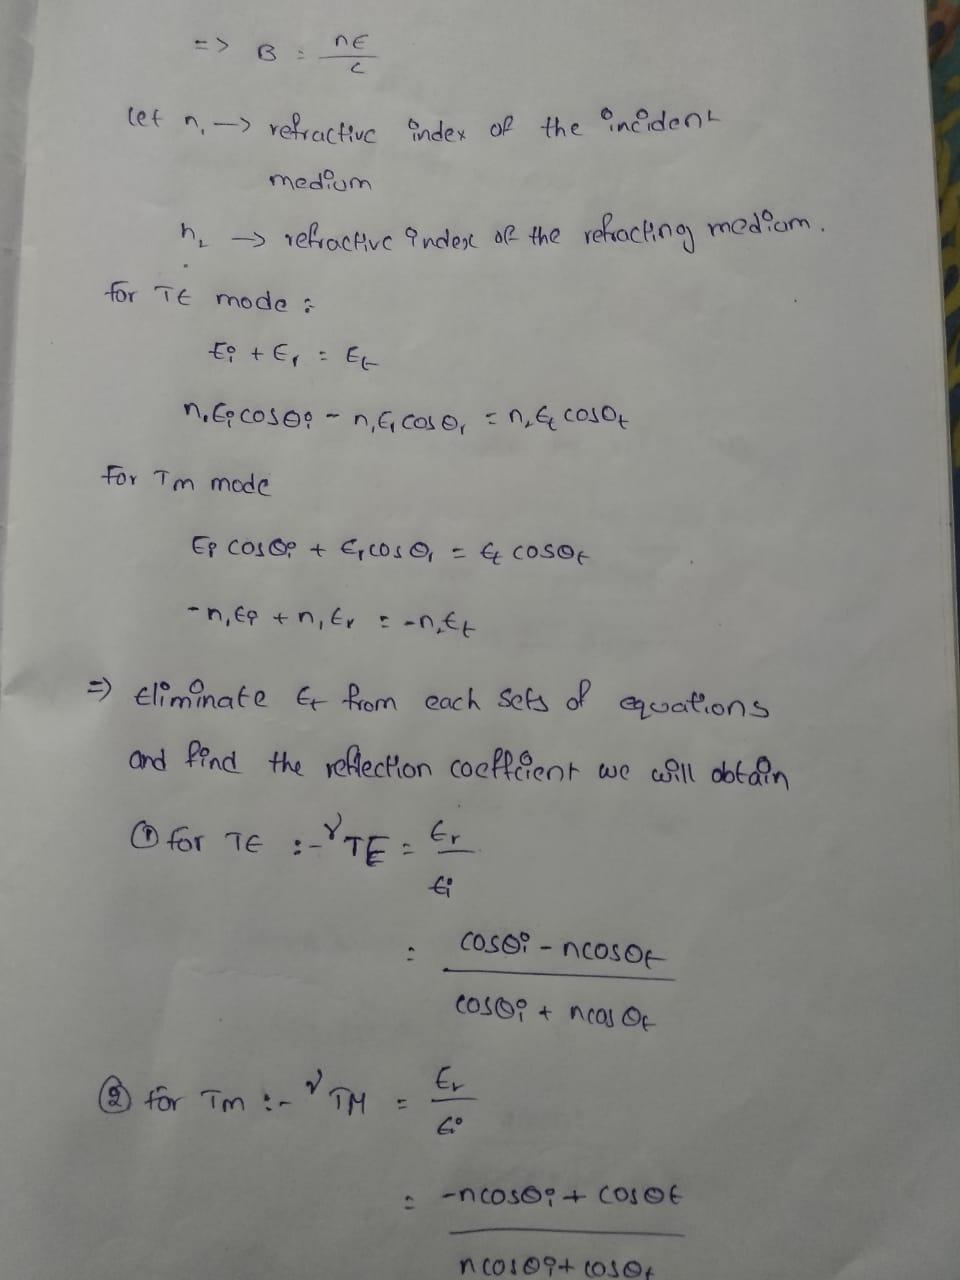 => B = nE/c
Let n₁ → refractive index of the incident
medium
n₂ → refractive index of the refracting medium.
for TE mode :
Ei + Er = Et
n₁Ei cosθi - n₁Er cosθr = n₂Et cosθt
For TM mode
Ei cosθi + Er cosθr = Et cosθt
-n₁Ei + n₁Er = -n₂Et
=> Eliminate Et from each sets of equations
and find the reflection coeffcient we will obtain
① for TE :- rTE = Er/Ei
= cosθi - ncosθt / cosθi + ncosθt
② for TM :- rTM = Er/Ei
= -ncosθi + cosθt / ncosθi + cosθt